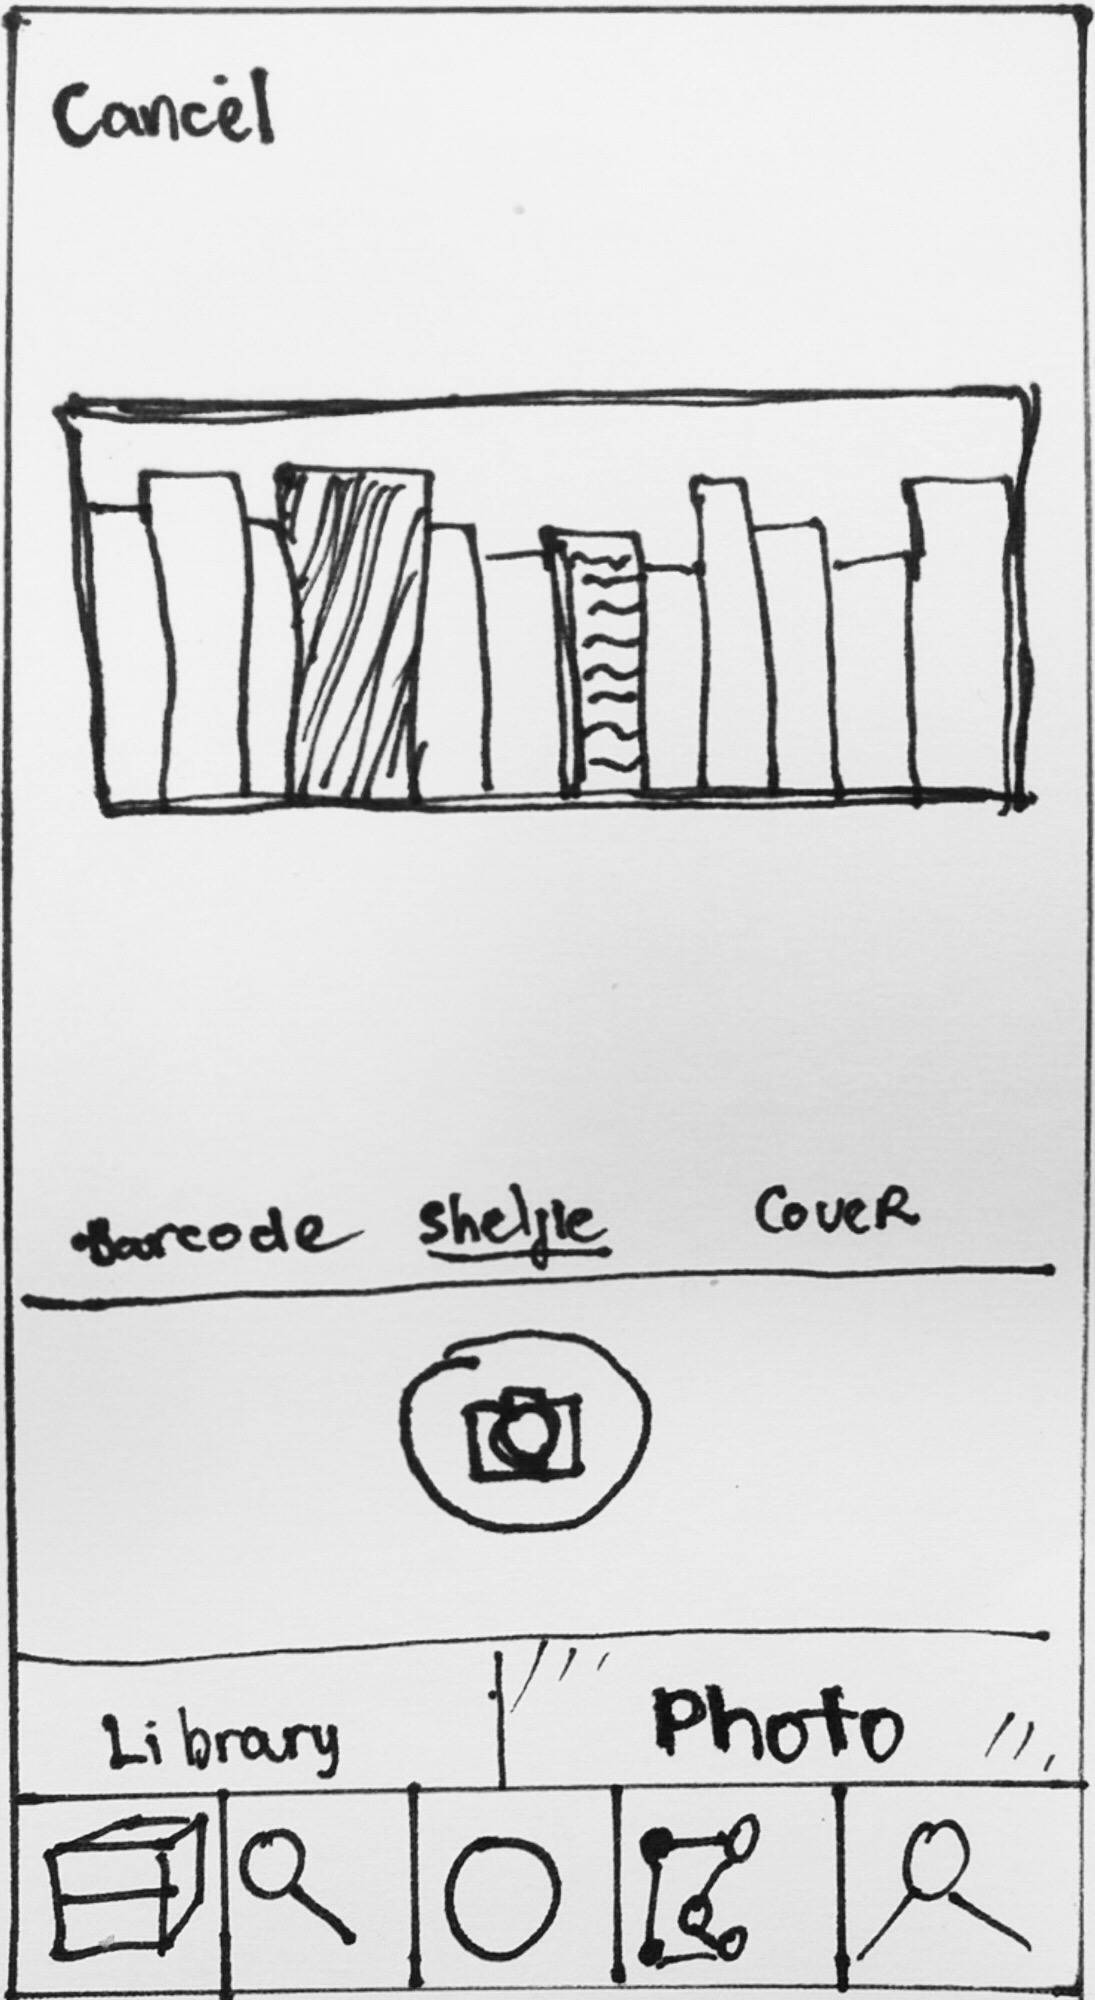 Cancel
Barcode Shelfie Cover
Library Photo